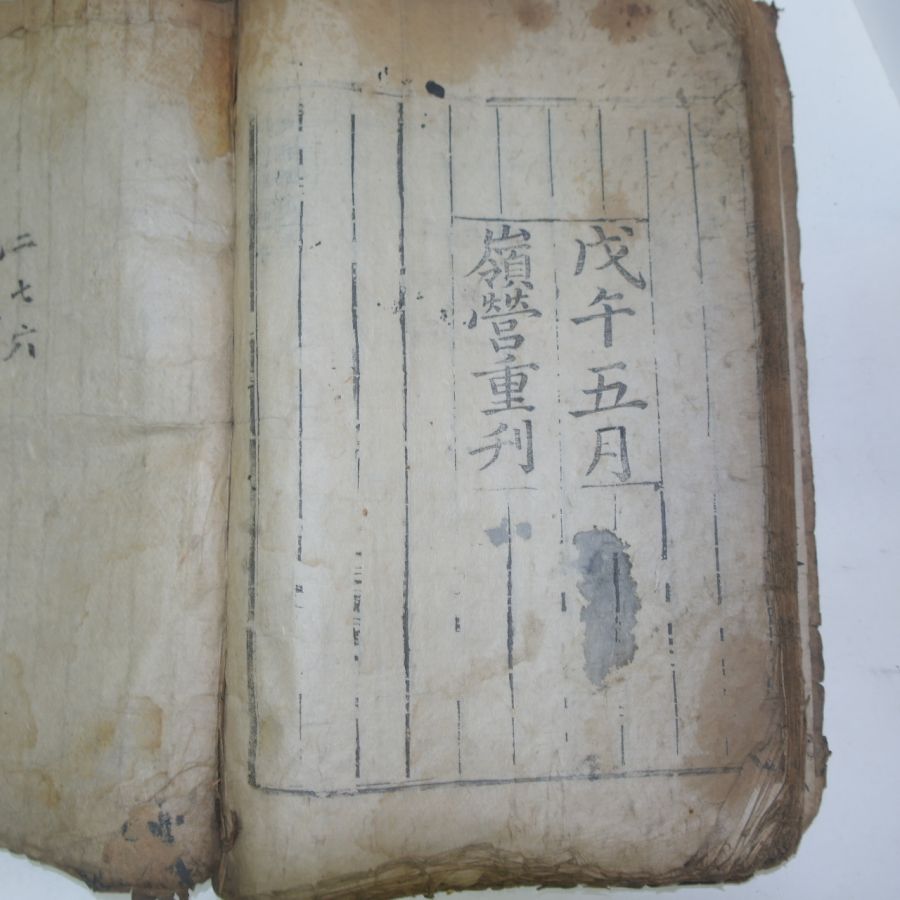 戊午五月
嶺營重刋
二七六